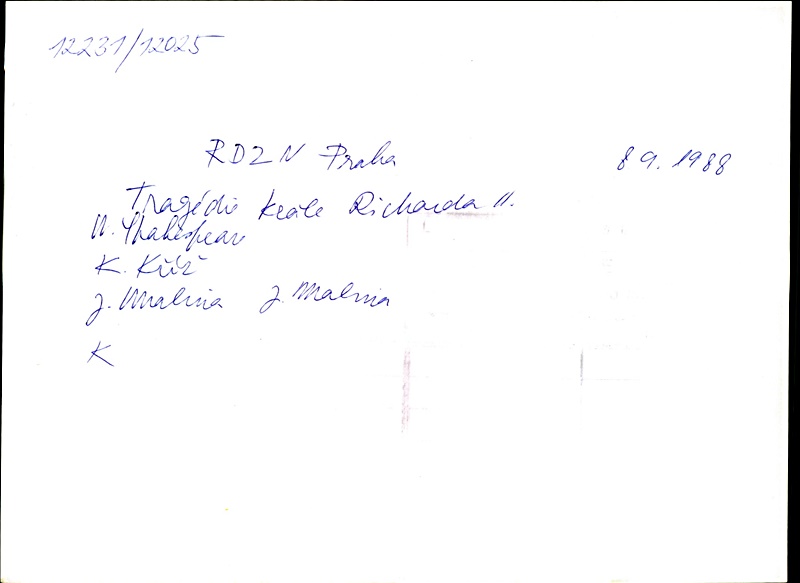 12231/12025
RDZN Praha 8 9. 1988
Tragédie krále Richarda II.
W. Shakespeare
K. Kříž
J. Malina J. Malina
K